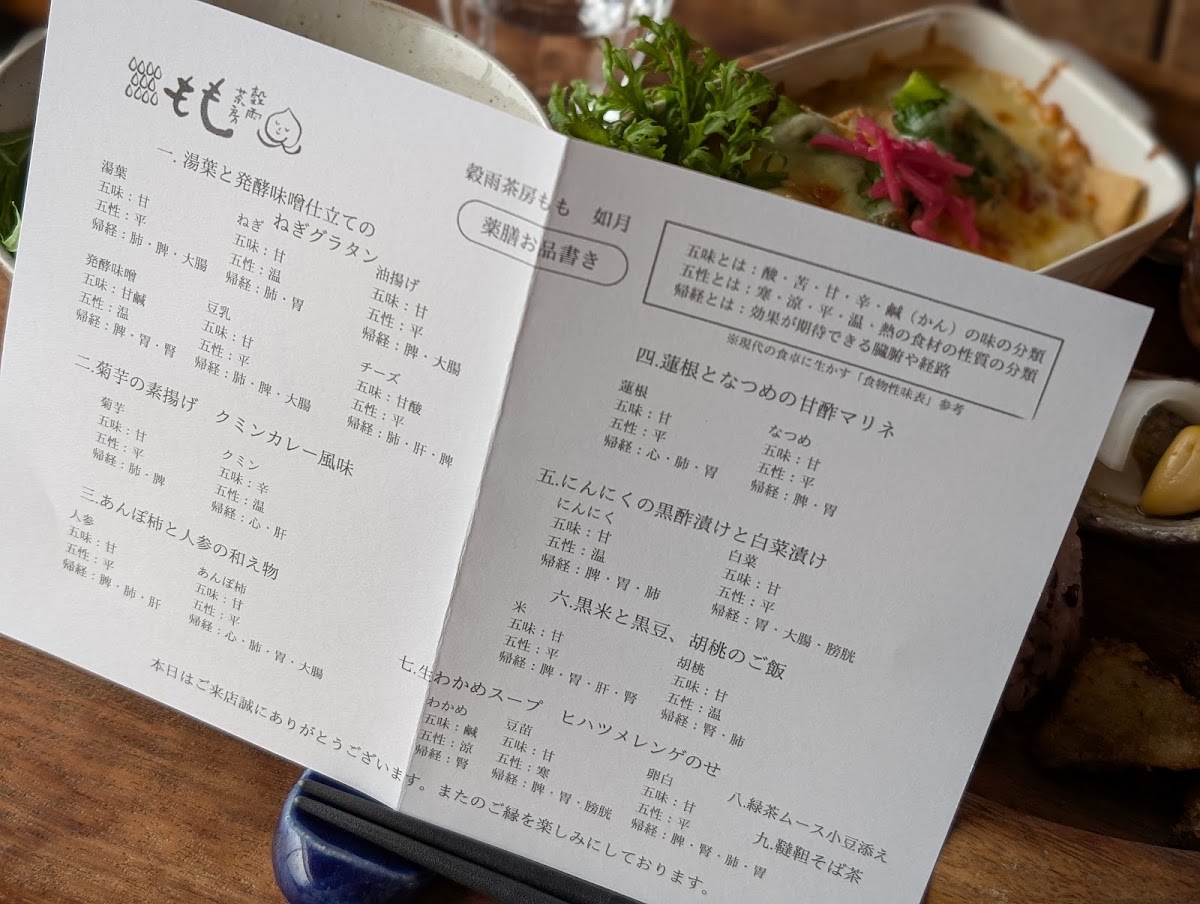 もも
穀雨
茶房
一. 湯葉と発酵味噌仕立ての
ねぎグラタン
湯葉
五味：甘
五性：平
帰経：肺・脾・大腸
ねぎ
五味：甘
五性：温
帰経：肺・胃
油揚げ
五味：甘
五性：平
帰経：脾・大腸
発酵味噌
五味：甘鹹
五性：温
帰経：脾・胃・腎
豆乳
五味：甘
五性：平
帰経：肺・脾・大腸
チーズ
五味：甘酸
五性：平
帰経：肺・肝・脾
二.菊芋の素揚げ　クミンカレー風味
菊芋
五味：甘
五性：平
帰経：肺・脾
クミン
五味：辛
五性：温
帰経：心・肝
三.あんぽ柿と人参の和え物
人参
五味：甘
五性：平
帰経：脾・肺・肝
あんぽ柿
五味：甘
五性：平
帰経：心・肺・胃・大腸
穀雨茶房もも　如月
薬膳お品書き
五味とは：酸・苦・甘・辛・鹹（かん）の味の分類
五性とは：寒・涼・平・温・熱の食材の性質の分類
帰経とは：効果が期待できる臓腑や経路
※現代の食卓に生かす「食物性味表」参考
四.蓮根となつめの甘酢マリネ
蓮根
五味：甘
五性：平
帰経：心・肺・胃
なつめ
五味：甘
五性：平
帰経：脾・胃
五.にんにくの黒酢漬けと白菜漬け
にんにく
五味：甘
五性：温
帰経：脾・胃・肺
白菜
五味：甘
五性：平
帰経：胃・大腸・膀胱
六.黒米と黒豆、胡桃のご飯
米
五味：甘
五性：平
帰経：脾・胃・肝・腎
胡桃
五味：甘
五性：温
帰経：腎・肺
七.生わかめスープ　ヒハツメレンゲのせ
わかめ
五味：鹹
五性：涼
帰経：腎
豆苗
五味：甘
五性：寒
帰経：脾・胃・膀胱
卵白
五味：甘
五性：平
帰経：脾・腎・肺・胃
八.緑茶ムース小豆添え
九.韃靼そば茶
本日はご来店誠にありがとうございます。またのご縁を楽しみにしております。